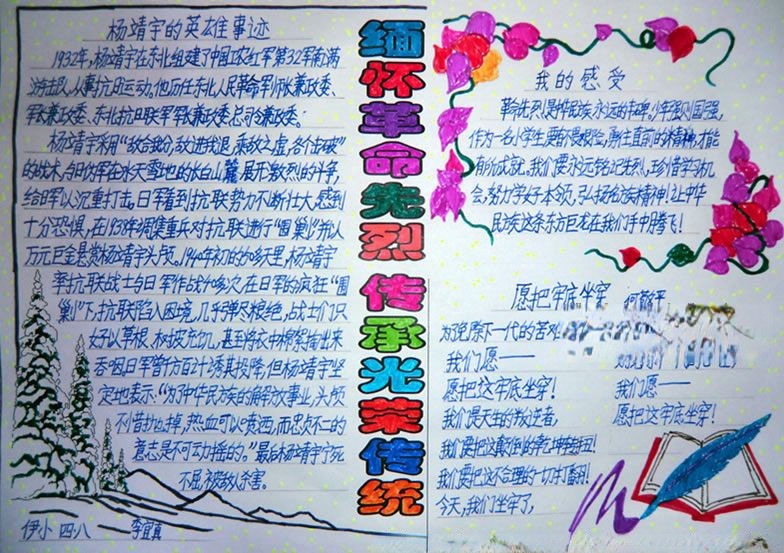 杨靖宇的英雄事迹
1932年,杨靖宇在东北组建了中国工农红军第32军南满
游击队,从事抗日运动。他历任东北人民革命军师长兼政委、
军长兼政委、东北抗日联军军长兼政委总司令兼政委。
杨靖宇采用“敌合我分,敌进我退,乘敌之虚,各个击破”
的战术,与日伪军在冰天雪地的长白山麓,展开激烈的斗争,
给日军以沉重打击。日军看到抗联势力不断壮大,感到
十分恐惧,在1938年调集重兵对抗联进行“围巢”,并以
万元巨金悬赏杨靖宇头颅。1940年初的60多天里,杨靖宇
率抗联战士与日军作战40多次,在日军的疯狂“围
巢”下,抗联陷入困境,几乎弹尽粮绝,战士们只
好以草根、树皮充饥,甚至将衣中棉絮掏出来
吞咽。日军曾千方百计诱其投降,但杨靖宇坚
定地表示:“为了中华民族的解放事业,头颅
不惜抛掉,热血可以喷洒,而忠贞不二的
意志是不可动摇的。”最后杨靖宇宁死
不屈,被敌人杀害。
伊小 四·八 李宜真
缅怀革命先烈 传承光荣传统
我的感受
革命先烈是中华民族永远的丰碑。少年强则国强,
作为一名小学生,要有不畏艰险,勇往直前的精神,才能
有所成就。我们要永远铭记先烈,珍惜学习机
会,努力学好本领,弘扬民族精神!让中华
民族这条东方巨龙在我们手中腾飞!
愿把牢底坐穿 何敬平
为了免除下一代的苦难
我们愿——
愿把这牢底坐穿!
我们是天生的叛逆者,
我们要把这颠倒的乾坤扭转!
我们要把这不合理的一切打翻!
今天,我们坐牢了,
我们愿——
愿把这牢底坐穿!